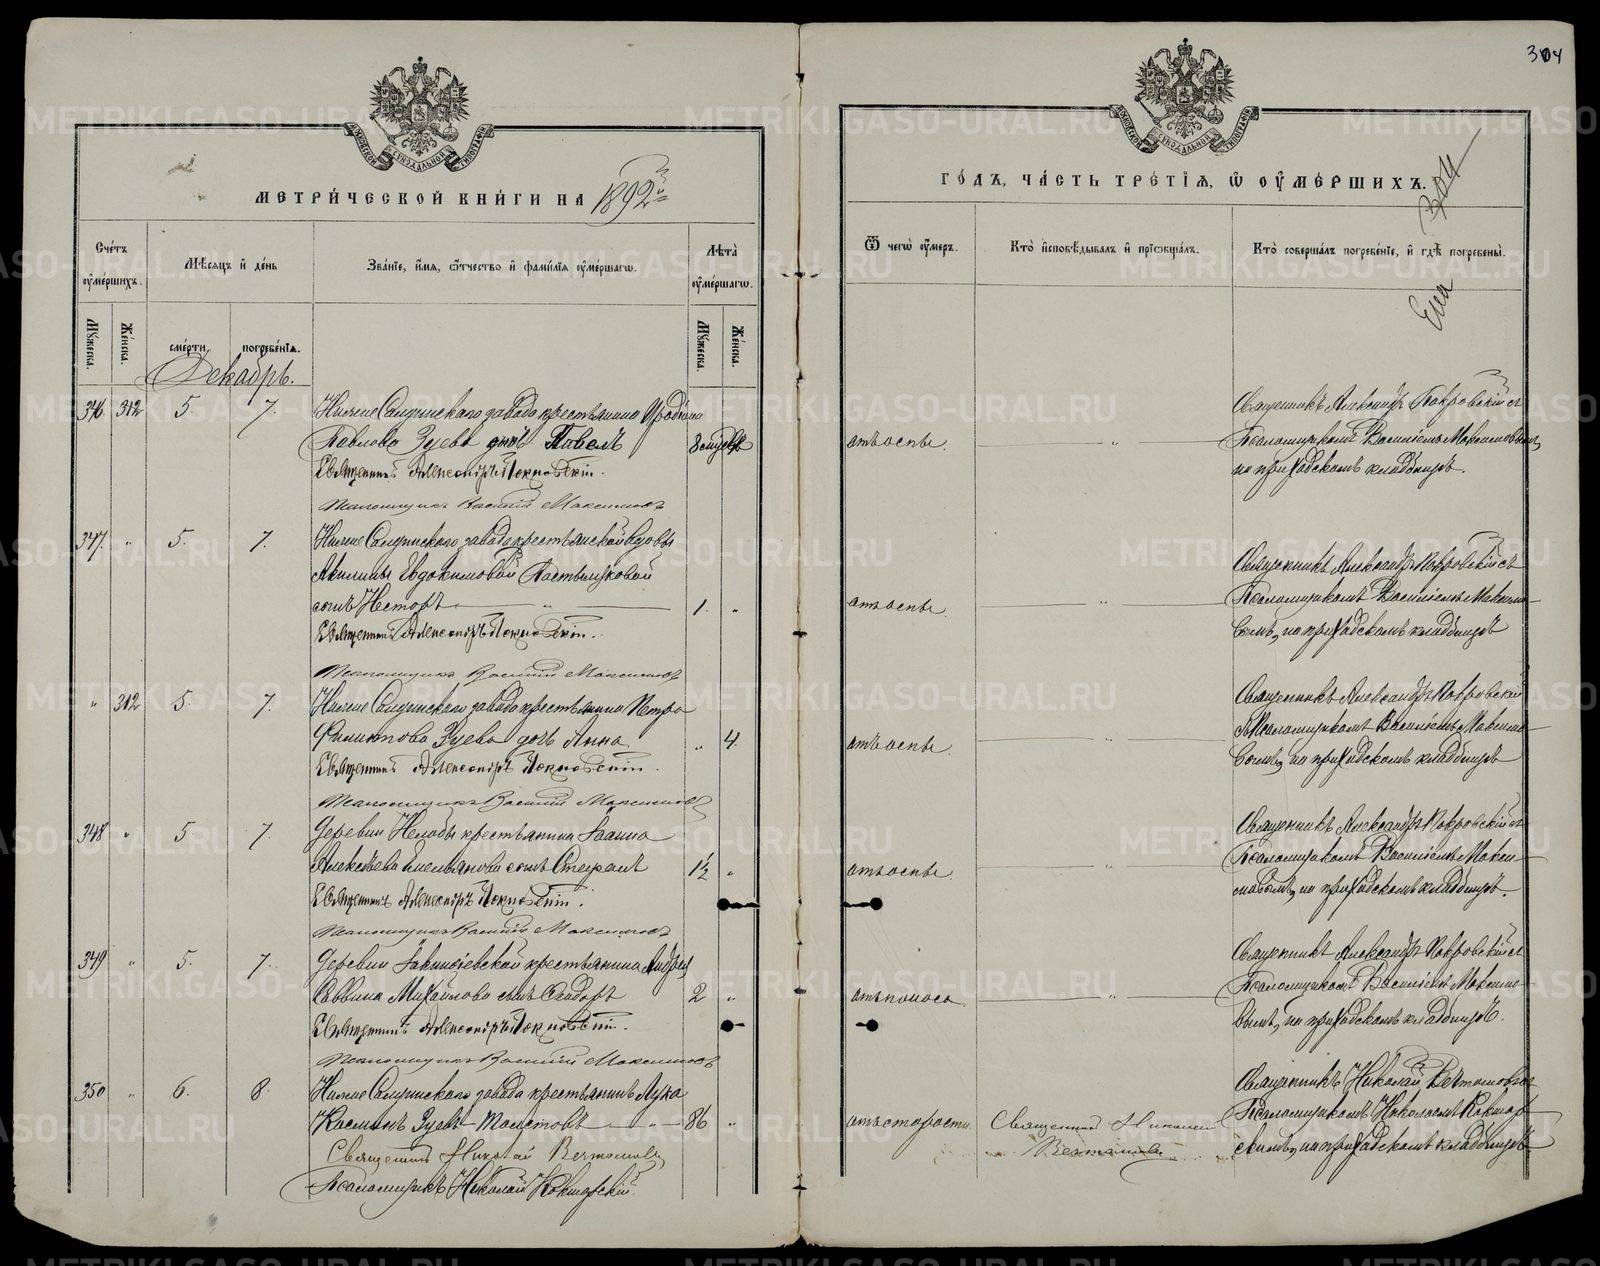 304
МЕТРИ́ЧЕСКОЙ КНИ́ГИ НА 1892й
ГО́ДЪ, ЧА́СТЬ ТРЕ́ТІѦ, Ѿ ОУ҆МЕ́РШИХЪ.
304
Счéтъ оу҆мéршихъ.
Мѣсѧцъ и҆ дéнь
Звáнїе, и҆́мѧ, ѻ҆́тчество и҆ фамѝлїѧ оу҆мéршагѡ.
Лѣ́та оу҆мéршагѡ.
Ѿ чегѡ̀ оу҆́меръ.
Кто̀ и҆сповѣ́дывалъ и҆ прїѡбщáлъ.
Кто̀ совершáлъ погребéнїе, и҆ гдѣ̀ погребены̀.
Мꙋ́жеска.
Жéнска.
смéрти,
погребéнїѧ.
Мꙋ́жеска.
Жéнска.
Декабрь.
346 312 5. 7. Нижне Салдинскаго завода крестьянина Иродіона
Павлова Зуева сынъ Павелъ
Священникъ Александръ Покровскій.
Псаломщикъ Василій Максимовъ
отъ оспы.
Священникъ Александръ Покровскій съ
Псаломщикомъ Василіемъ Максимовымъ,
на приходскомъ кладбищѣ.
347. " 5. 7. Нижне Салдинскаго завода крестьянской вдовы
Акилины Евдокимовой
сынъ Несторъ " 1. "
Священникъ Александръ Покровскій.
Псаломщикъ Василій Максимовъ
отъ оспы "
Священникъ Александръ Покровскій съ
Псаломщикомъ Василіемъ Максимо-
вымъ, на приходскомъ кладбищѣ
" 312 5. 7. Нижне Салдинскаго завода крестьянина Петра
Филиппова Зуева дочь Анна " 4.
Священникъ Александръ Покровскій.
Псаломщикъ Василій Максимовъ
отъ оспы "
Священникъ Александръ Покровскій
съ Псаломщикомъ Василіемъ Максимо-
вымъ, на приходскомъ кладбищѣ
348 " 5 7. Деревни Нелобы крестьянина Іоанна
Алексѣева Емельянова сынъ Стефанъ 1½ "
Священникъ Александръ Покровскій.
Псаломщикъ Василій Максимовъ
отъ оспы. "
Священникъ Александръ Покровскій съ
Псаломщикомъ Василіемъ Макси-
мовымъ, на приходскомъ кладбищѣ.
349 " 5. 7. Деревни крестьянина Андрея
Саввина Михайлова сынъ Ѳедоръ 2 "
Священникъ Александръ Покровскій.
Псаломщикъ Василій Максимовъ
отъ поноса "
Священникъ Александръ Покровскій съ
Псаломщикомъ Василіемъ Максимо-
вымъ, на приходскомъ кладбищѣ.
350 " 6. 8. Нижне Салдинскаго завода крестьянинъ Лука
Косминъ Зуевъ Толстовъ " 86 "
Священникъ Николай
Псаломщикъ Николай
отъ старости
Священникъ Николай
Священникъ Николай
Псаломщикомъ Николаемъ
на приходскомъ кладбищѣ
METRIKI.GASO-URAL.RU